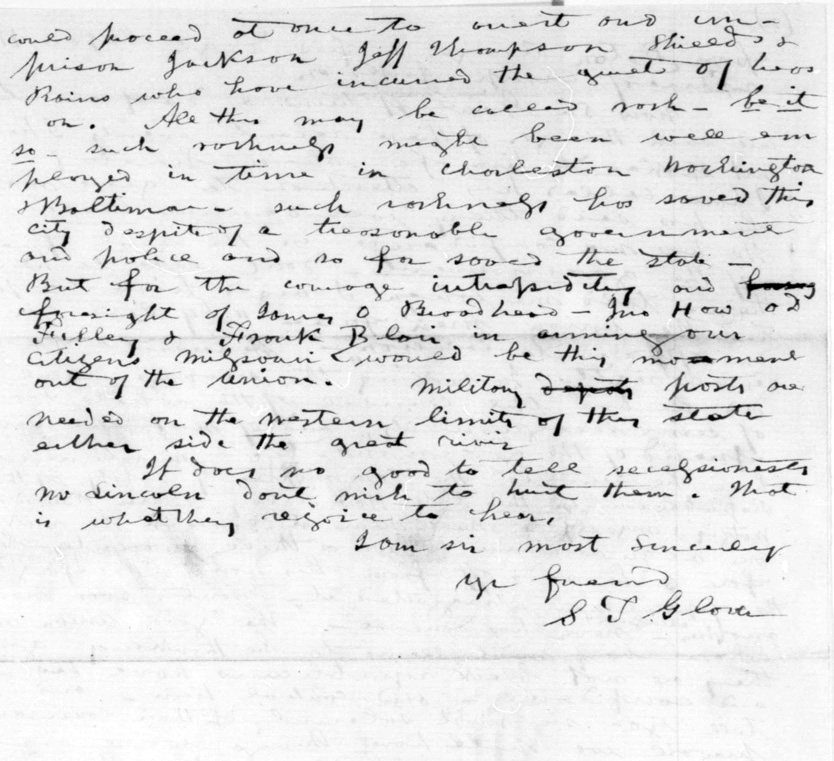 could proceed at once to arrest and im-
prison Jackson Jeff Thompson Shields &
Rains who have incurred the guilt of treas
on. All this may be called rash - be it
so - such rashness might been well em
ployed in time in Charleston Washington
& Baltimore - such rashness has saved this
city despite of a treasonable government
and police and so far saved the state -
But for the courage intrepidity and
foresight of James O Broadhead - Jno How OD
Filley & Frank Blair in arming our
citizens Missouri would be this moment
out of the Union. Military depots posts are
needed on the western limits of this state
either side the great river
It does no good to tell secessionests
Mr Lincoln dont wish to hurt them. That
is what they rejoice to hear,
I am sir most Sincerely
yr friend
S T Glover